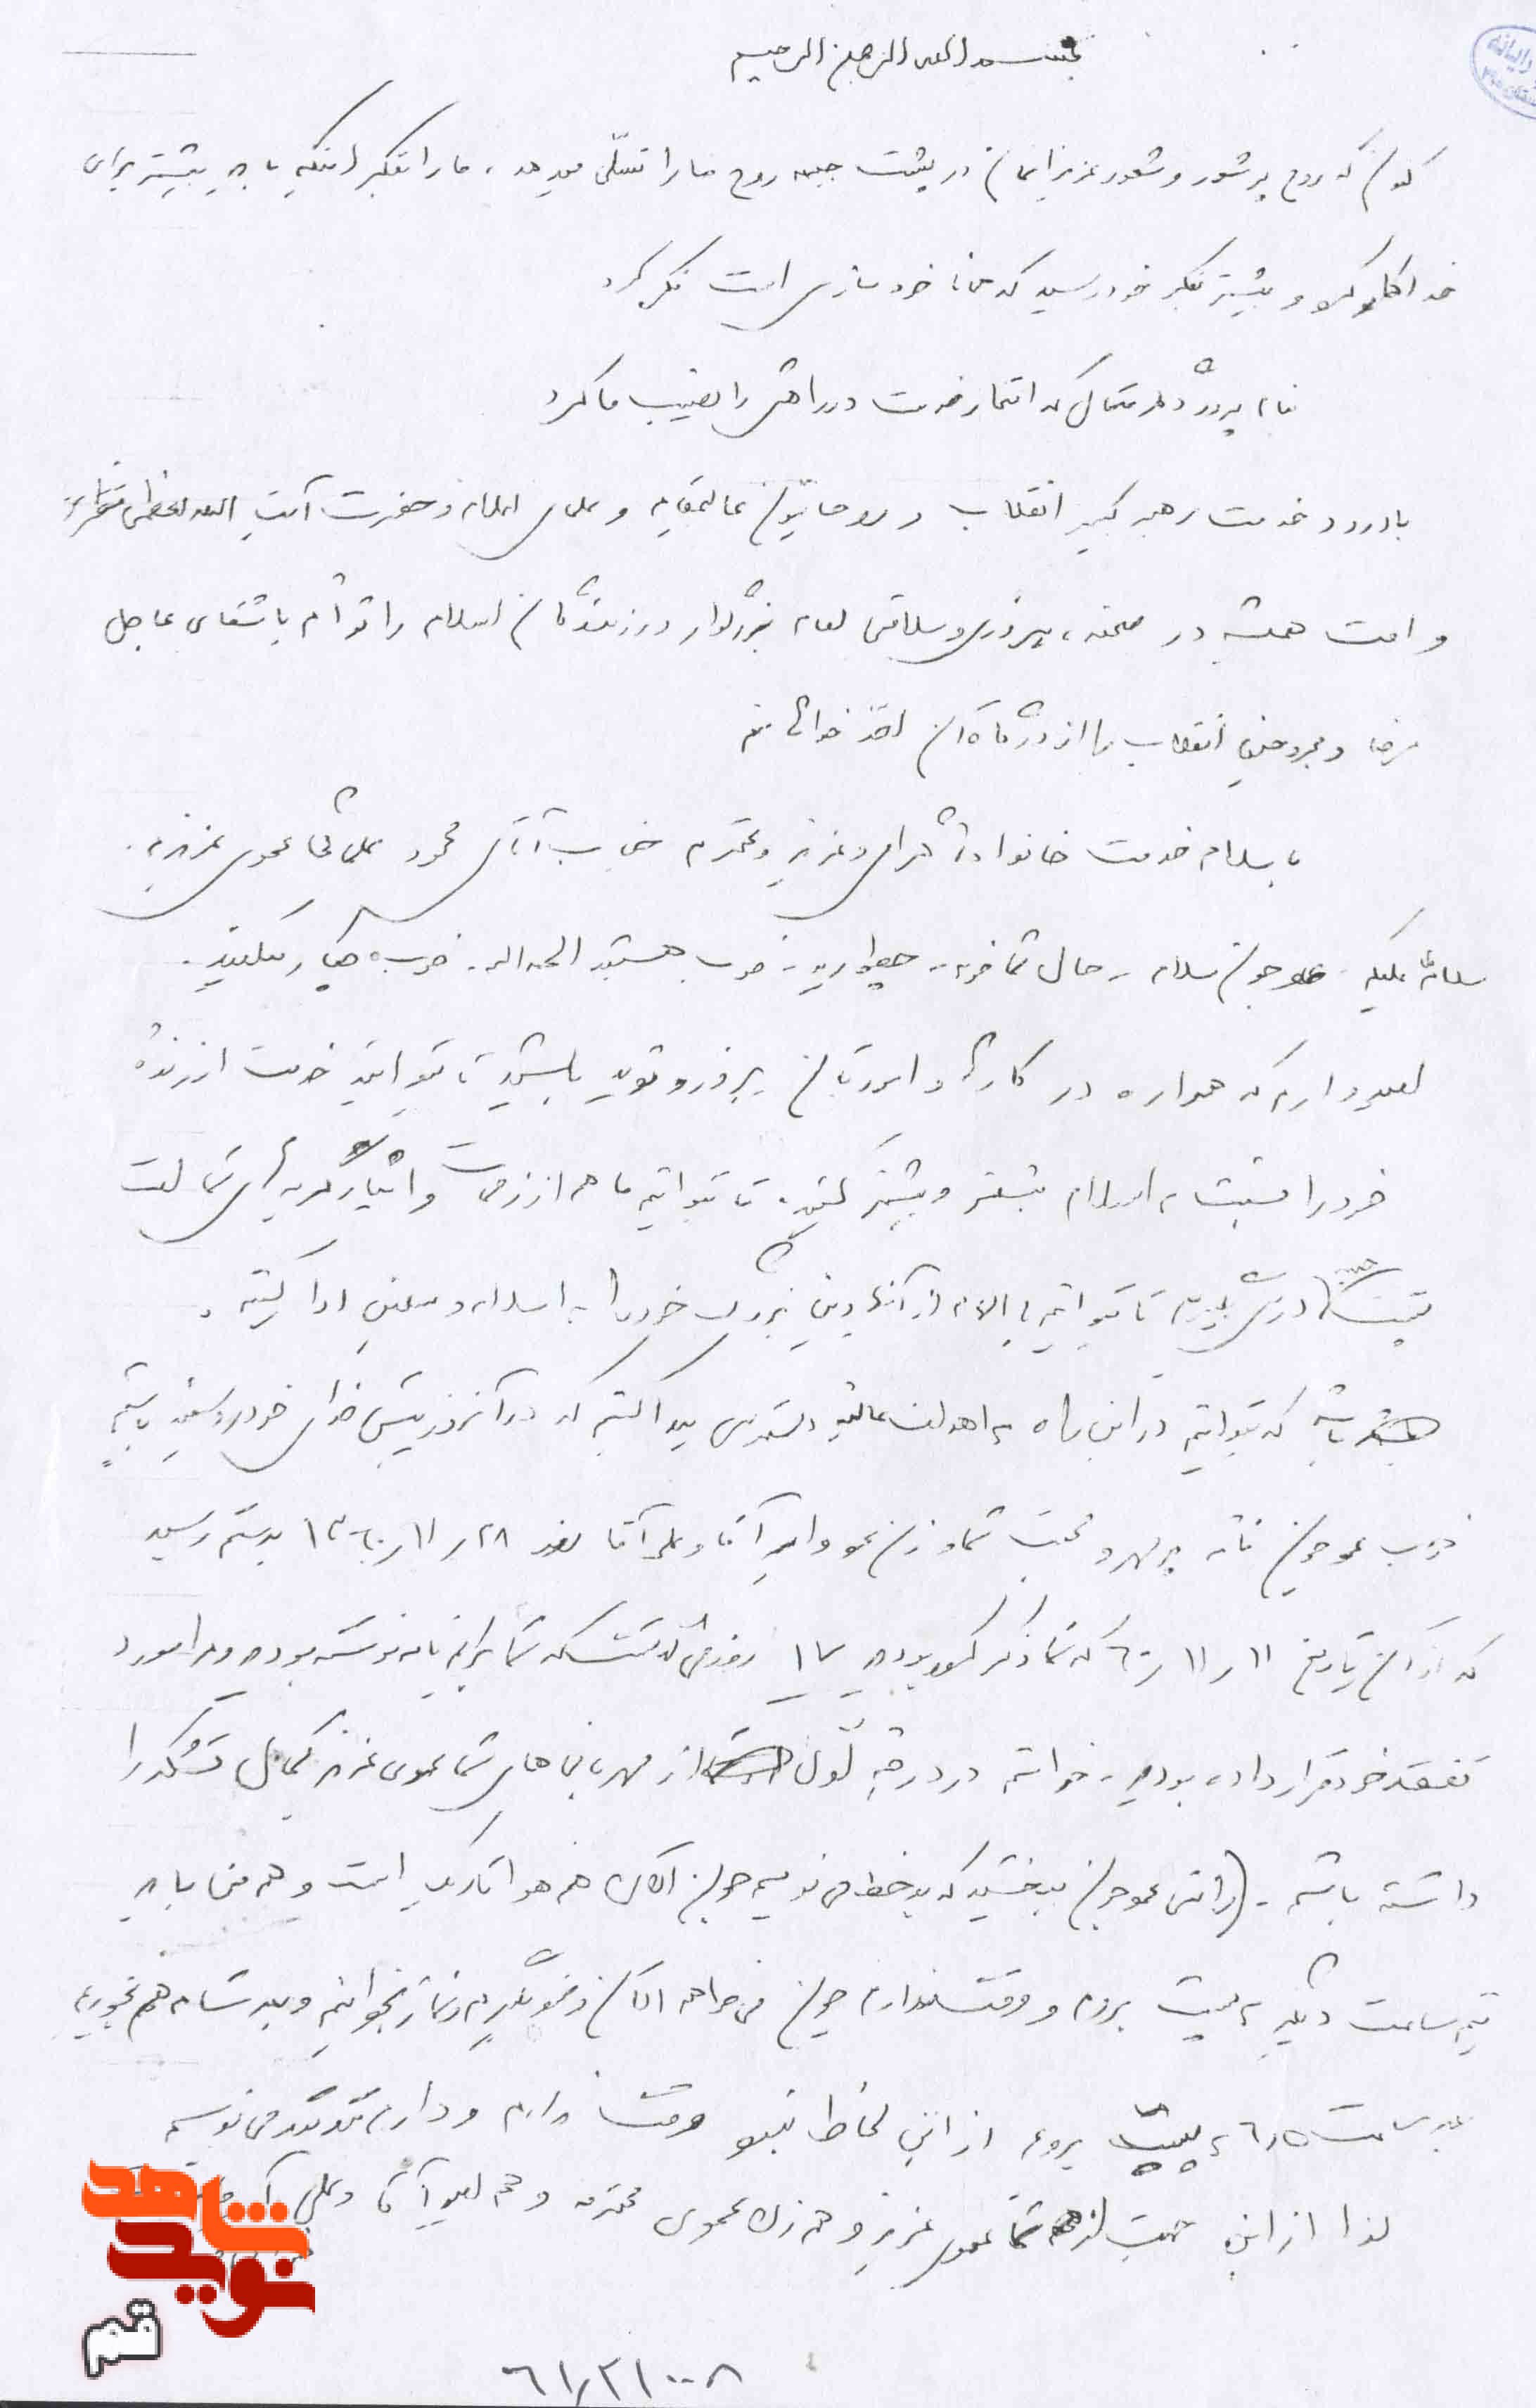 بسم الله الرحمن الرحیم
که روح پر شور و شعور عزیزانمان در پشت جبهه روح ما را تسلی میدهد، ما را بفکر اینکه باید بیشتر برای
خدا کار کرد و بیشتر بفکر خود رسید که همانا خود سازی است فکر کرد
بنام پروردگار متعال که افتخار خدمت در راهش را نصیب ما کرد
با درود خدمت رهبر کبیر انقلاب و روحانیون عالیمقام و علمای اسلام و حضرت آیت الله العظمی منتظری
و امت همیشه در صحنه، پیروزی و سلامتی امام بزرگوار و رزمندگان اسلام را توأم با شفای عاجل
مرضا و مجروحین انقلاب را از درگاه آن احد خواهانم
با سلام خدمت خانواده گرامی و عزیز و محترم جناب آقای محمود عموی عزیزم.
سلام علیکم. عمو جون سلام - حال شما خوبه - چطورید - خوب هستید الحمدالله. خوب چکار میکنید.
امیدوارم که همواره در کارها و امورتان پیروز و موید باشید تا بتوانید خدمت ارزنده
خود را نسبت به اسلام بیشتر و بیشتر کنید. تا بتوانیم ما هم از زحمات و ایثارگریهای شما امت
درس بگیریم تا بتوانیم با الهام از آنها دین بزرگ خود را به اسلام و میهن ادا کنیم.
باشد که بتوانیم در این راه به اهداف عالیه دسترسی پیدا کنیم که در آنروز پیش خدای خود رو سفید باشیم
خوب عمو جون نامه پر مهر و محبت شما و زن عمو و امیر آقا و علی آقا روز ۲۸ر۱۱ر۱۳۶۰ بدستم رسید
که از آن تاریخ ۱۱ر۱۱ر۶۰ که شما ذکر کرده بودید ۱۷ روزی گذشت که شما برایم نامه نوشته بودید و مرا مورد
تفقد خود قرار داده بودید. خواستم در درجه اول از مهربانی های شما عموی عزیز کمال تشکر را
داشته باشم. (راستی عمو جون ببخشید که بد خط می نویسم چون الان هم هوا تاریک است و هم من باید
نیم ساعت دیگه به پست بروم و وقت ندارم چون می خواهم الان وضو بگیرم و نماز بخوانم و بعد شام هم بخورم
بعد ساعت ۶٫۵ به پست بروم از این لحاظ وقت ندارم و دارم تند تند می نویسم
لذا از این جهت از شما عموی عزیز و هم زن عموی محترمه و هم امیر آقا و علی آقا
۶۱ر۲۱۰۰۸
شاهد
نوید
قم